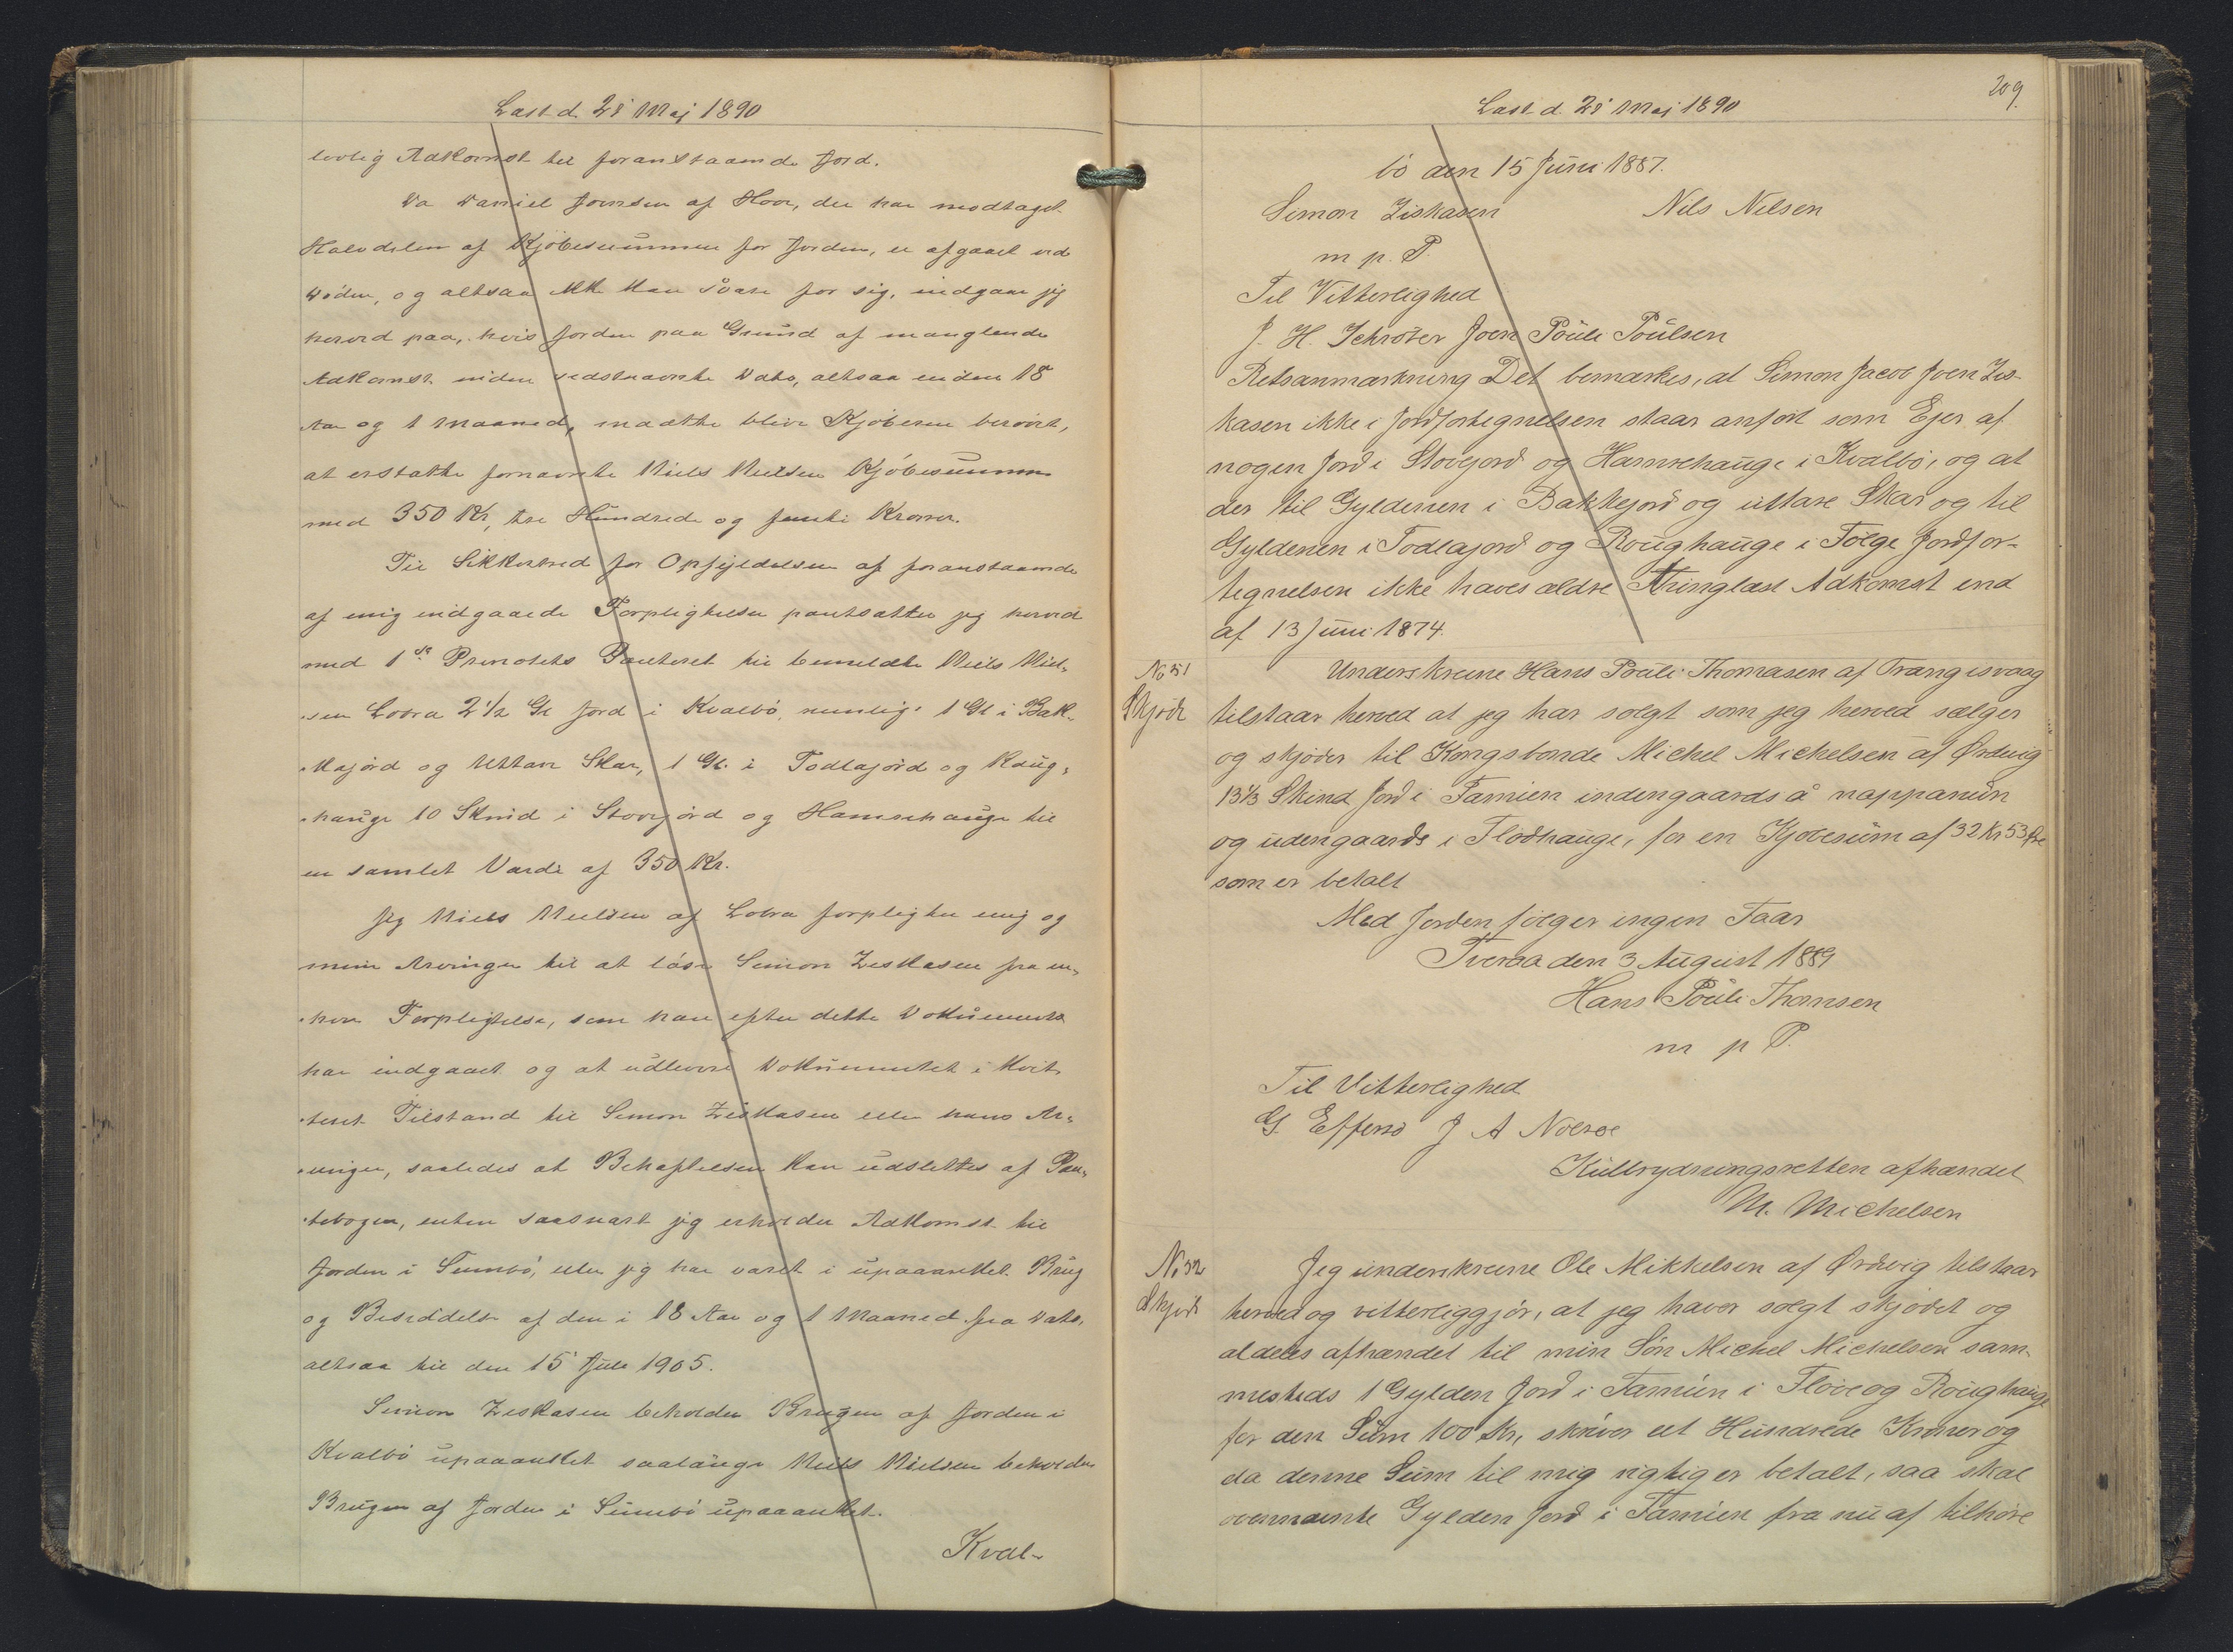 Læst d. 28 Maj 1890
lovlig Adkomst til foranstaaende Jord.
Da Daniel Joensen af Hove, der har modtaget
Halvdelen af Kjöbesummen for Jorden, er afgaaet ved
Döden, og altsaa ikke kan svare for sig, indgaar jeg
herved paa, hvis Jorden paa Grund af manglende
Adkomst inden nedskrevne Dato, altsaa inden 18
Aar og 1 Maaned, maatte blive Kjöberen berövet,
at erstatte fornævnte Niels Nielsen Kjöbesummen
med 350 Kr, tre Hundrede og femti Kroner.
Til Sikkerhed for Opfyldelsen af foranstaaende
af mig indgaaede Forpligtelse pantsætter jeg herved
med 1ste Prioritets Panteret til bemeldte Niels Niel-
sen Lobra 2 1/2 Gl Jord i Kvalbö, nemlig: 1 Gl i Bak-
kajörd og Uttare Skar, 1 Gl. i Todlajörd og Raug-
hauge 10 Skind i Stovejörd og Hamrehauge til
en samlet Værdi af 350 Kr.
Jeg Niels Nielsen af Lobra forpligter mig og
mine Arvinger til at löse Simon Ziskasen fra en-
hver Forpligtelse, som han efter dette Dokument
har indgaaet og at udlevere Dokumentet i kvit-
teret Tilstand til Simon Ziskasen eller hans Ar-
vinger, saaledes at Behæftelsen kan udslettes af Pan-
tebogen, enten saasnart jeg erholder Adkomst til
Jorden i Sumbö, eller jeg har været i upaaanket Brug
og Besiddelse af den i 18 Aar og 1 Maaned fra Dato,
altsaa til den 15 Juli 1905.
Simon Ziskasen beholder Brugen af Jorden i
Kvalbö upaaanket saalænge Niels Nielsen beholder
Brugen af Jorden i Sumbö upaaanket.
Kval-
209
Læst d. 28 Maj 1890
bö den 15 Juni 1887.
Simon Ziskasen Nils Nilsen
m. p. P.
Til Vitterlighed
J. H. Schröter Joen Pouli Poulsen
Retsanmærkning Det bemærkes, at Simon Jacob Joen Zis-
kasen ikke i Jordfortegnelsen staar anfört som Ejer af
nogen Jord i Stovejord og Hamrehauge i Kvalbö, og at
der til Gyldenen i Bakkejord og uttare Skar og til
Gyldenen i Todlajord og Roughauge i Fölge Jordfor-
tegnelsen ikke haves ældre Thinglæst Adkomst end
af 13 Juni 1874.
No 51
Skjöde
Underskrevne Hans Pouli Thomasen af Trangisvaag
tilstaar herved at jeg har solgt som jeg herved sælger
og skjöder til Kongsbonde Michel Michelsen af Ørdevig
13 1/3 Skind Jord i Famien indengaards å nappanun
og udengaards i Flödhauge, for en Kjöbesum af 32 Kr 53 Øre
som er betalt
Med Jorden fölger ingen Faar
Tveraa den 3 August 1889
Hans Pouli Thomsen
m p P.
Til Vitterlighed
G. Effersö J A Nolsøe
Kulbrydningsretten afhændet
M. Michelsen
No 52
Skjöde
Jeg underskrevne Ole Mikkelsen af Ørdvig tilstaar
herved og vitterliggjör, at jeg haver solgt skjödet og
aldeles afhændet til min Sön Michel Michelsen sam-
mesteds 1 Gylden Jord i Famien i Flöde og Roughauge
for den Sum 100 Kr, skriver et Hundrede Kroner og
da denne Sum til mig rigtig er betalt, saa skal
ovennævnte Gylden Jord i Famien fra nu af tilhöre